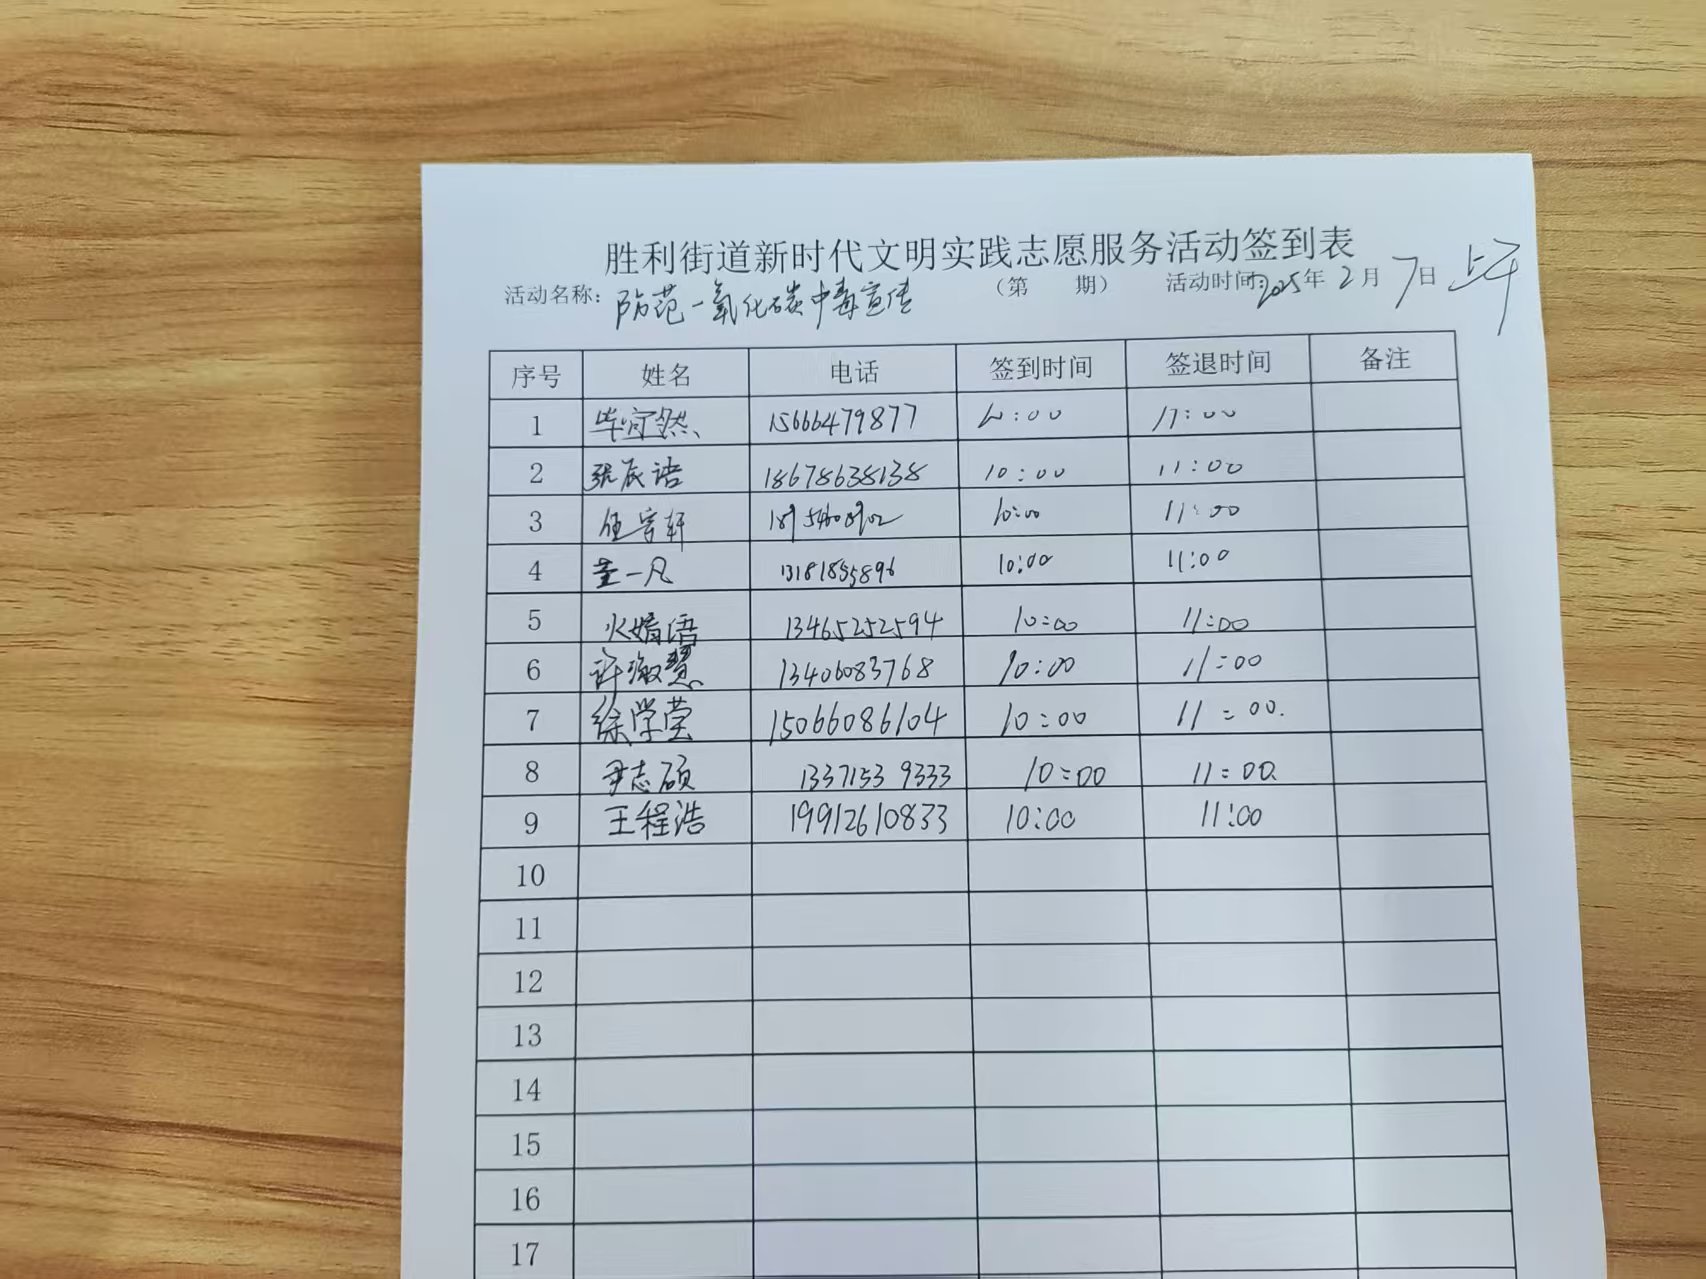 胜利街道新时代文明实践志愿服务活动签到表
活动名称：防范一氧化碳中毒宣传 （第 期） 活动时间：2025年2月7日 上午
序号 姓名 电话 签到时间 签退时间 备注
1 毕宜然 15666479877 10:00 11:00
2 张辰语 18678638138 10:00 11:00
3 任宇轩 10:00 11:00
4 董一凡 13181835896 10:00 11:00
5 火婧语 13465252594 10:00 11:00
6 许淑慧 13406083768 10:00 11:00
7 徐学莹 15066086104 10:00 11:00.
8 尹志硕 13371539333 10:00 11:00.
9 王程浩 19912610833 10:00 11:00
10
11
12
13
14
15
16
17